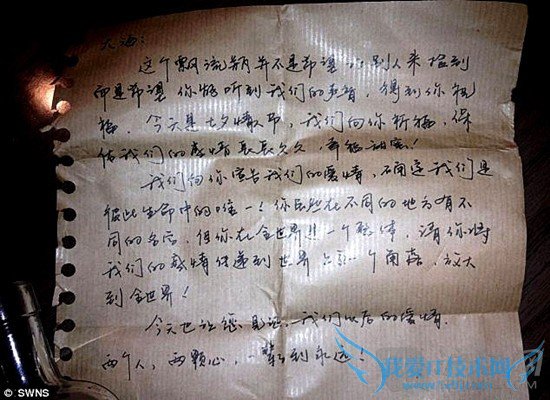 大海：
这个飘流瓶并不是希望让别人来捡到
而是希望你能听到我们的声音，得到你祝
福。今天是七夕情人节，我们向你祈福，保
佑我们的感情长长久久，幸福甜蜜！
我们向你宣告我们的爱情，确定我们是
彼此生命中的唯一！你虽然在不同的地方有不
同的名字，但你在全世界是一个整体，请你将
我们的感情传递到世界上每一个角落，放大
到全世界！
今天也让您见证，我们以后的爱情，
两个人，两颗心，一辈到永远！
© SWNS
我爱IT技术网